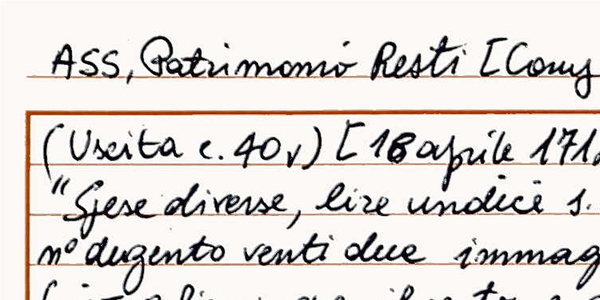 ASS, Patrimonio Resti [Cons
(Uscita c. 40v) [18 aprile 171
"Spese diverse, lire undici s.
n° dugento venti due immag